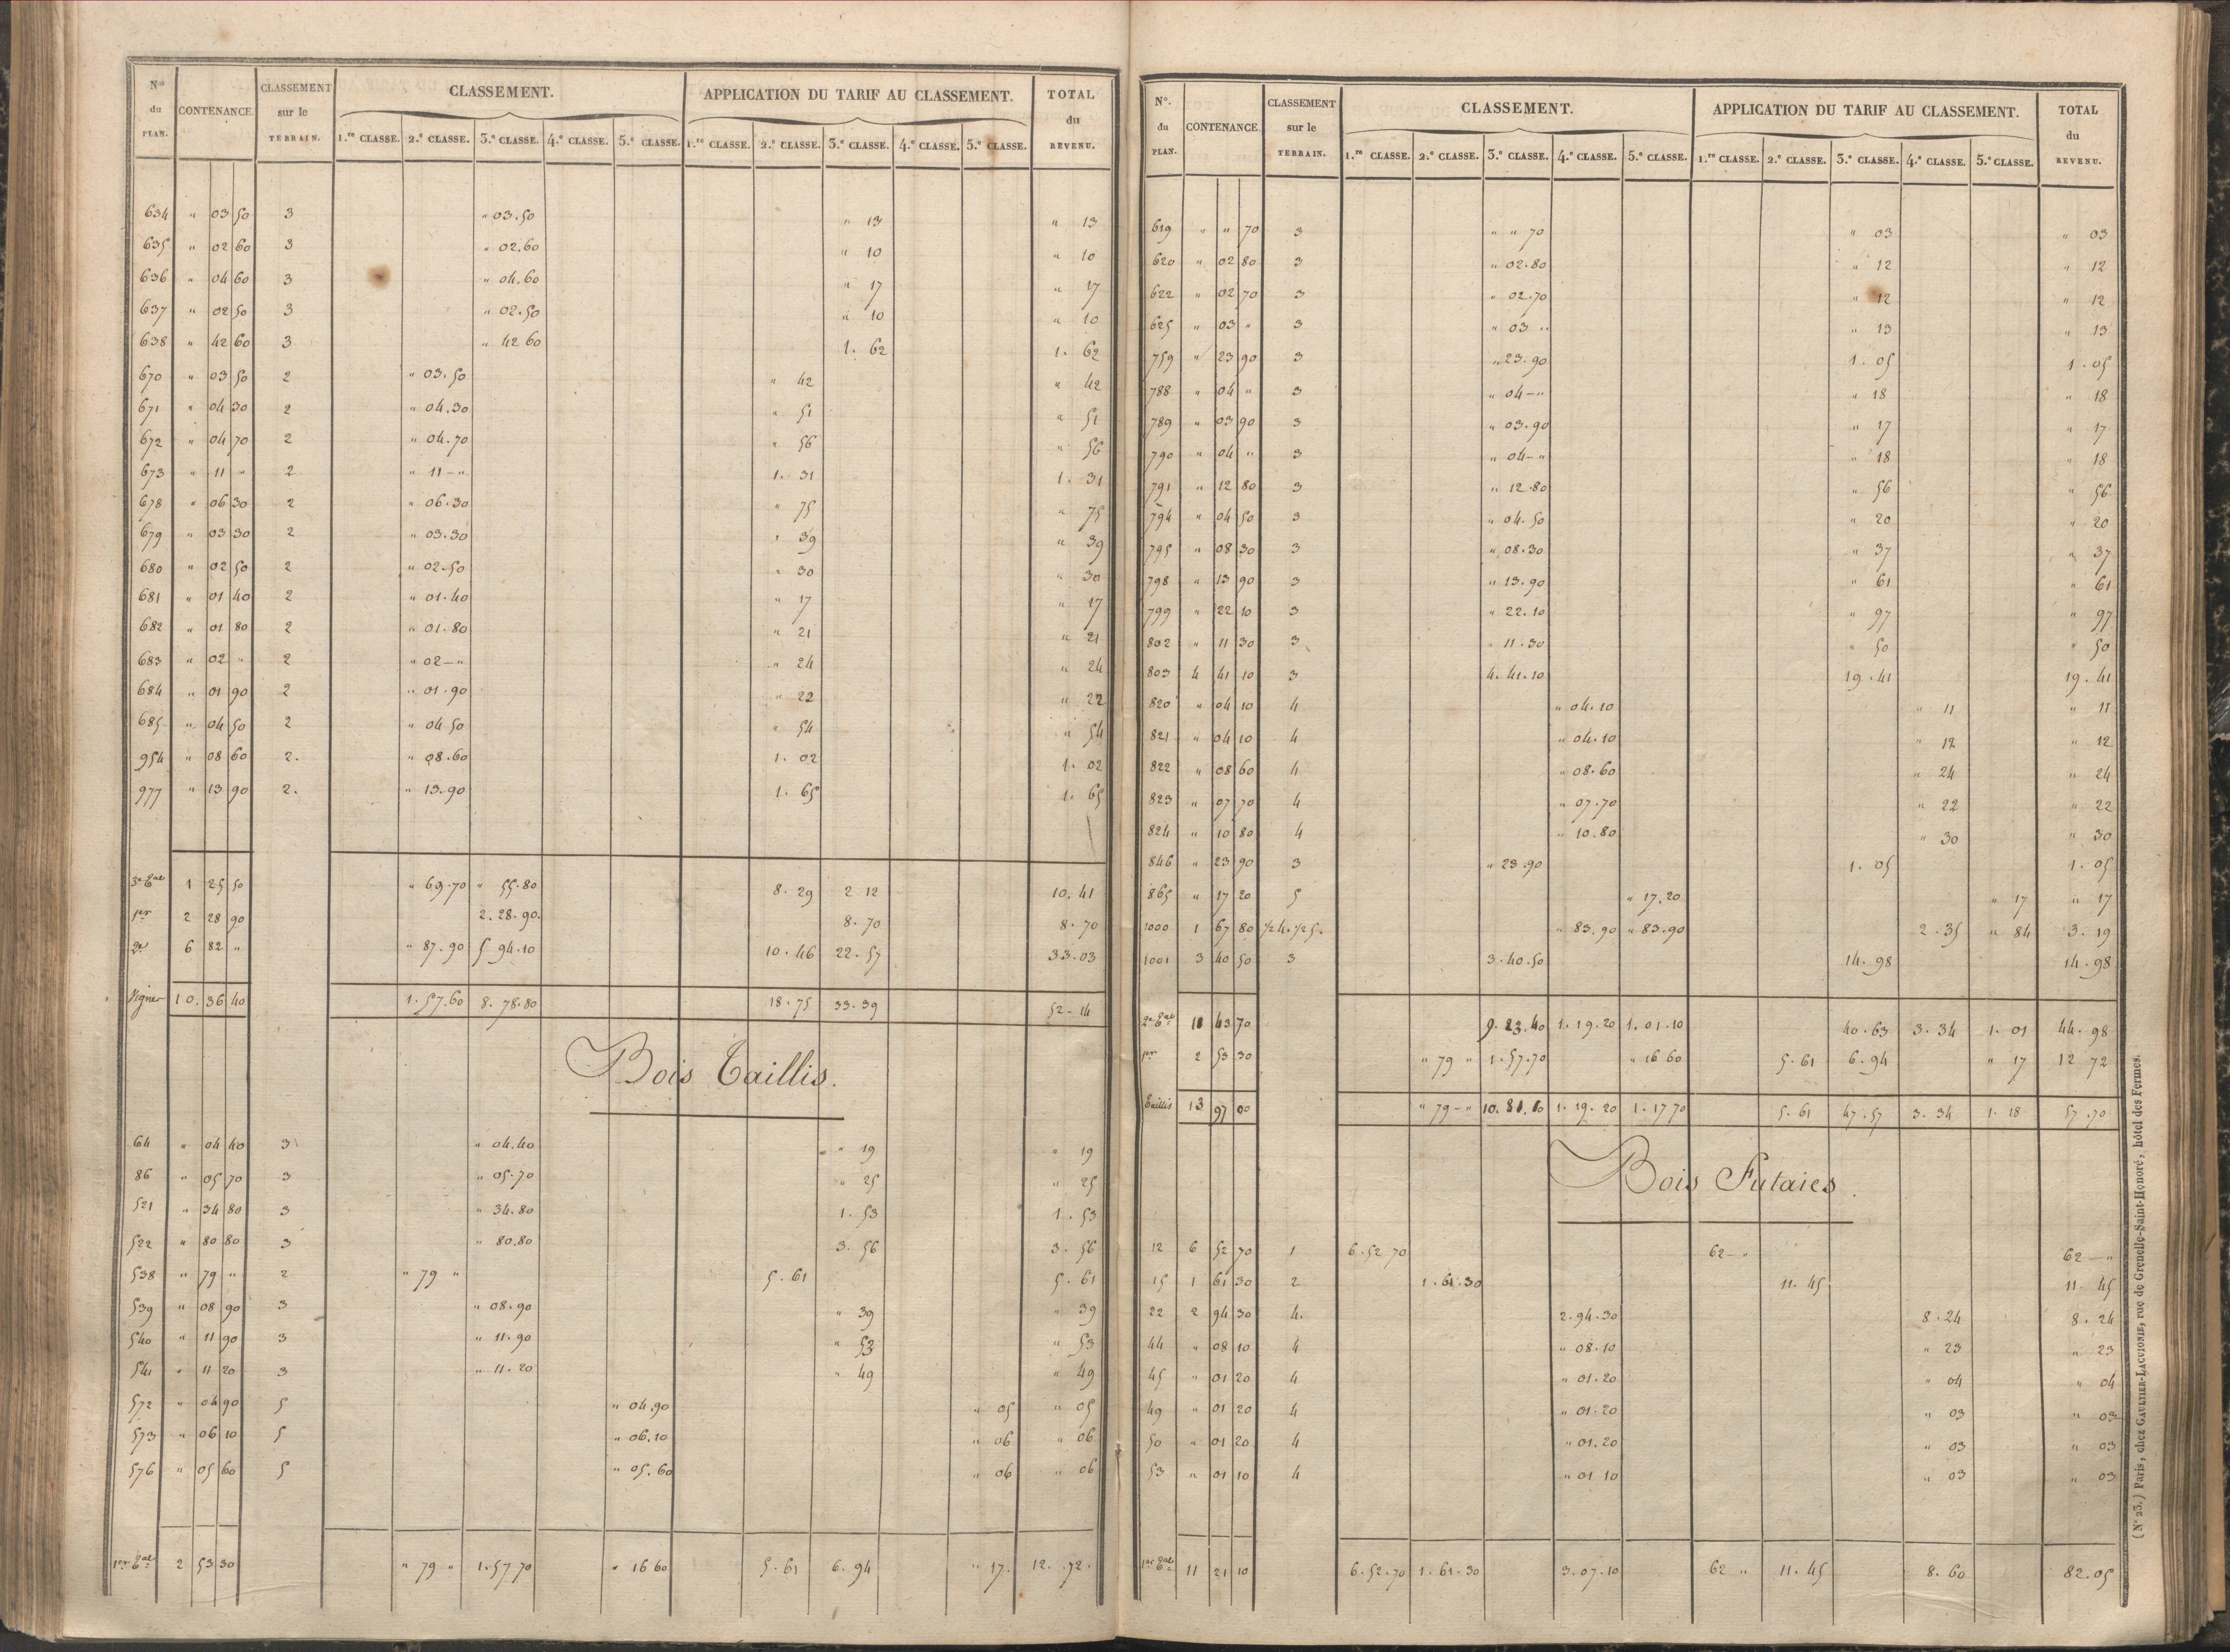 Nos du PLAN. CONTENANCE. CLASSEMENT sur le TERRAIN. CLASSEMENT. APPLICATION DU TARIF AU CLASSEMENT. TOTAL du REVENU.
1.re CLASSE. 2.e CLASSE. 3.e CLASSE. 4.e CLASSE. 5.e CLASSE. 1.re CLASSE. 2.e CLASSE. 3.e CLASSE. 4.e CLASSE. 5.e CLASSE.
634 " 03 50 3 " 03.50 " 13 " 13
635 " 02 60 3 " 02.60 " 10 " 10
636 " 04 60 3 " 04.60 " 17 " 17
637 " 02 50 3 " 02.50 " 10 " 10
638 " 42 60 3 " 42 60 1. 62 1. 62
670 " 03 50 2 " 03.50 " 42 " 42
671 " 04 30 2 " 04.30 " 51 " 51
672 " 04 70 2 " 04.70 " 56 " 56
673 " 11 " 2 " 11 - " 1. 31 1. 31
678 " 06 30 2 " 06.30 " 75 " 75
679 " 03 30 2 " 03.30 " 39 " 39
680 " 02 50 2 " 02.50 " 30 " 30
681 " 01 40 2 " 01.40 " 17 " 17
682 " 01 80 2 " 01.80 " 21 " 21
683 " 02 " 2 " 02 - " " 24 " 24
684 " 01 90 2 " 01.90 " 22 " 22
685 " 04 50 2 " 04 50 " 54 " 54
954 " 08 60 2. " 08.60 1. 02 1. 02
977 " 13 90 2. " 13.90 1. 65 1. 65
3e Eal 1 25 50 " 69.70 " 55.80 8. 29 2 12 10. 41
1er 2 28 90 2. 28. 90. 8. 70 8. 70
2e 6 82 " " 87.90 5 94.10 10. 46 22. 57 33.03
Vignes 10. 36 40 1. 57.60 8. 78.80 18. 75 33. 39 52 - 14
Bois Taillis.
64 " 04 40 3 " 04.40 " 19 " 19
86 " 05 70 3 " 05.70 " 25 " 25
521 " 34 80 3 " 34.80 1. 53 1. 53
522 " 80 80 3 " 80.80 3. 56 3. 56
538 " 79 " 2 " 79 " 5. 61 5. 61
539 " 08 90 3 " 08.90 " 39 " 39
540 " 11 90 3 " 11.90 " 53 " 53
541 " 11 20 3 " 11. 20 " 49 " 49
572 " 04 90 5 " 04.90 " 05 " 05
573 " 06 10 5 " 06.10 " 06 " 06
576 " 05 60 5 " 05. 60 " 06 " 06
1er Eal 2 53 30 " 79 " 1. 57 70 " 16 60 5. 61 6. 94 " 17. 12. 72.
No. du PLAN. CONTENANCE. CLASSEMENT sur le TERRAIN. CLASSEMENT. APPLICATION DU TARIF AU CLASSEMENT. TOTAL du REVENU.
1.re CLASSE. 2.e CLASSE. 3.e CLASSE. 4.e CLASSE. 5.e CLASSE. 1.re CLASSE. 2.e CLASSE. 3.e CLASSE. 4.e CLASSE. 5.e CLASSE.
619 " " 70 3 " " 70 " 03 " 03
620 " 02 80 3 " 02.80 " 12 " 12
622 " 02 70 3 " 02.70 " 12 " 12
625 " 03 " 3 " 03 " " 13 " 13
759 " 23 90 3 " 23.90 1. 05 1. 05
788 " 04 " 3 " 04 - " " 18 " 18
789 " 03 90 3 " 03.90 " 17 " 17
790 " 04 " 3 " 04 - " " 18 " 18
791 " 12 80 3 " 12.80 " 56 " 56
794 " 04 50 3 " 04.50 " 20 " 20
795 " 08 30 3 " 08.30 " 37 " 37
798 " 13 90 3 " 13.90 " 61 " 61
799 " 22 10 3 " 22.10 " 97 " 97
802 " 11 30 3 " 11.30 " 50 " 50
803 4 41 10 3 4. 41.10 19. 41 19. 41
820 " 04 10 4 " 04.10 " 11 " 11
821 " 04 10 4 " 04.10 " 12 " 12
822 " 08 60 4 " 08.60 " 24 " 24
823 " 07 70 4 " 07.70 " 22 " 22
824 " 10 80 4 " 10.80 " 30 " 30
846 " 23 90 3 " 23.90 1. 05 1. 05
865 " 17 20 5 " 17.20 " 17 " 17
1000 1 67 80 1/2 4. 1/2 5. " 83.90 " 83.90 2. 35 " 84 3. 19
1001 3 40 50 3 3. 40. 50 14. 98 14. 98
2e Eal 11 43 70 9. 23. 40 1. 19. 20 1. 01. 10 40. 63 3. 34 1. 01 44. 98
1er 2 53 30 " 79 " 1. 57.70 " 16 60 5. 61 6. 94 " 17 12 72
Taillis 13 97 00 " 79 - " 10. 81. 10 1. 19. 20 1. 17 70 5. 61 47. 57 3. 34 1. 18 57. 70
Bois Futaies.
12 6 52 70 1 6. 52 70 62 - " 62 - "
15 1 61 30 2 1. 61. 30 11. 45 11. 45
22 2 94 30 4. 2. 94. 30 8. 24 8. 24
44 " 08 10 4 " 08.10 " 23 " 23
45 " 01 20 4 " 01.20 " 04 " 04
49 " 01 20 4 " 01.20 " 03 " 03
50 " 01 20 4 " 01.20 " 03 " 03
53 " 01 10 4 " 01 10 " 03 " 03
1er Eal 11 21 10 6. 52. 70 1. 61. 30 3. 07. 10 62 " 11. 45 8. 60 82. 05
(N° 23.) Paris, chez GAULTIER-LAGUIONIE, rue de Grenelle-Saint-Honoré, hôtel des Fermes.